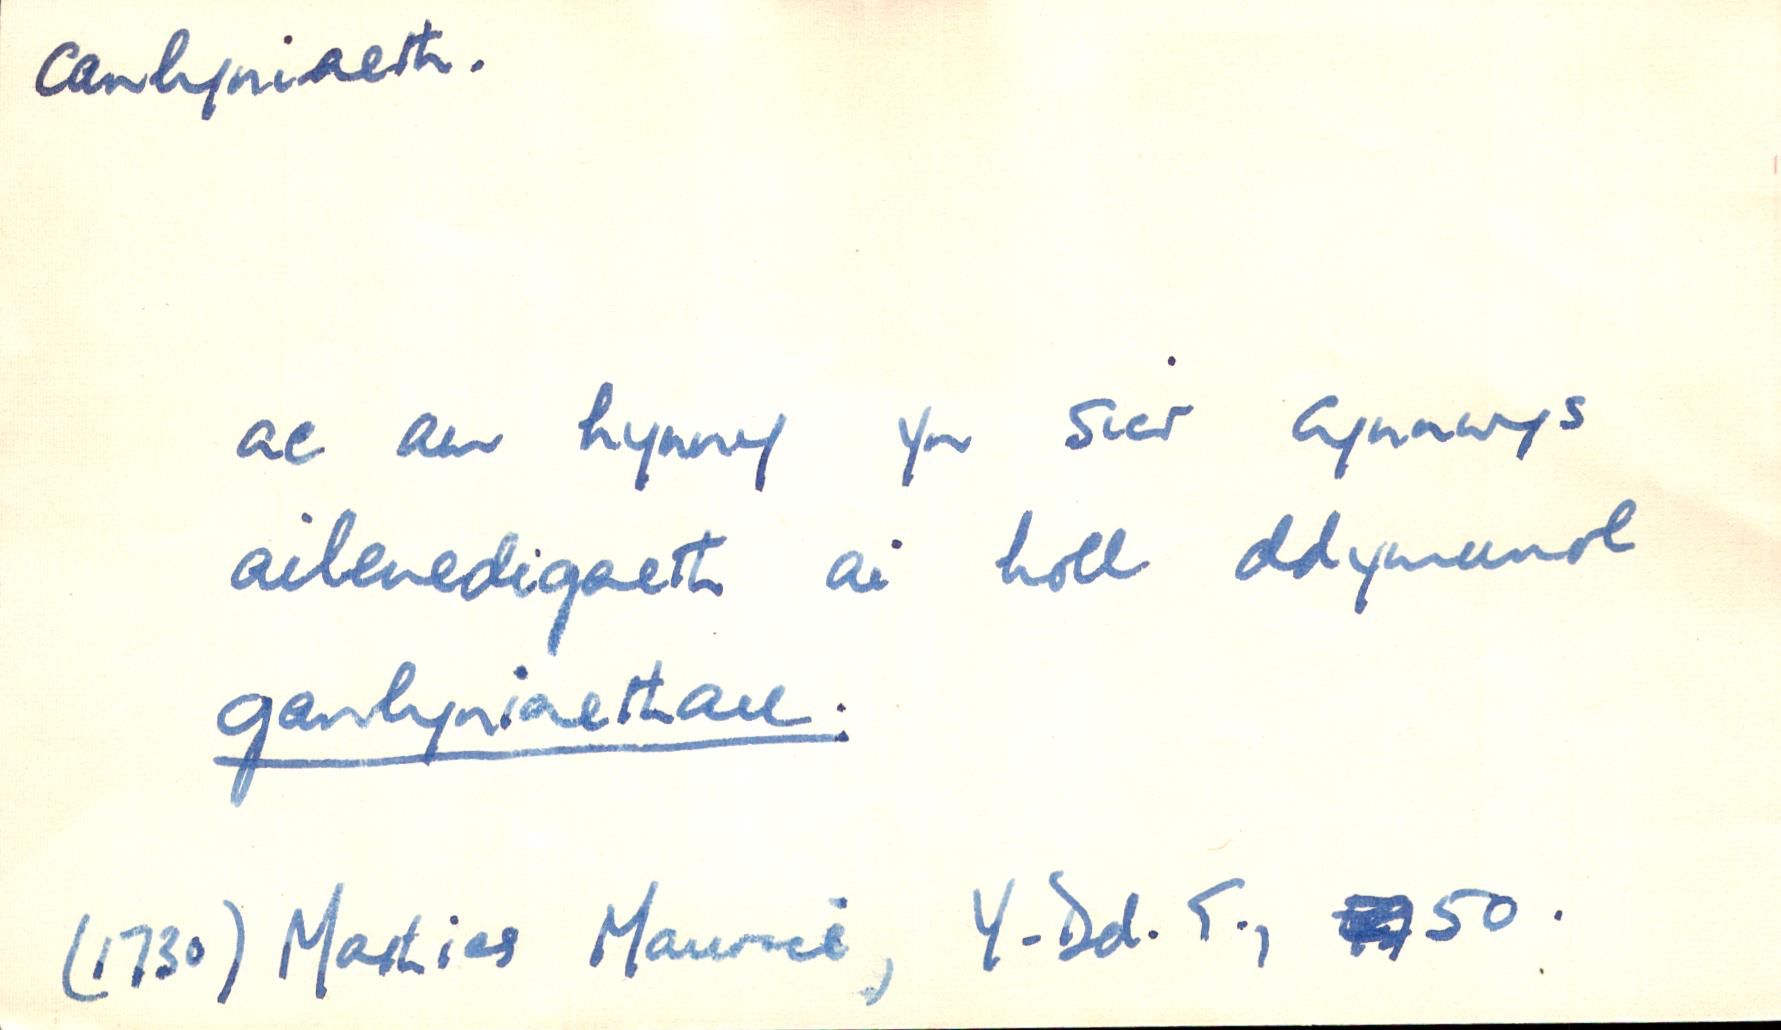 canlyniaeth.
ac am hynny yn sicr cynnwys
ailenedigaeth ai holl ddymunol
ganlyniaethau:
(1730) Mathias Maurice, Y. Dd. T., 50.